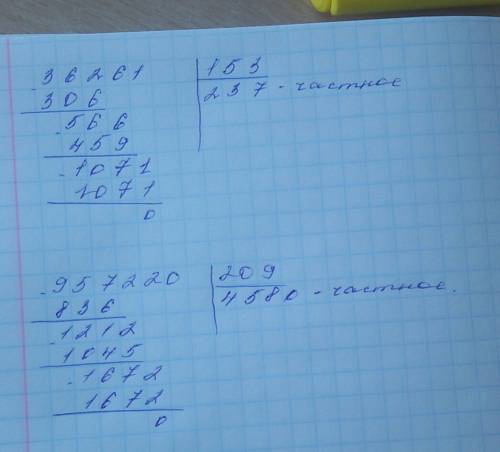 - 36261 | 153
306 237 - частное
- 566
459
- 1071
1071
0
- 957220 | 209
836 4580 - частное.
- 1212
1045
- 1672
1672
0